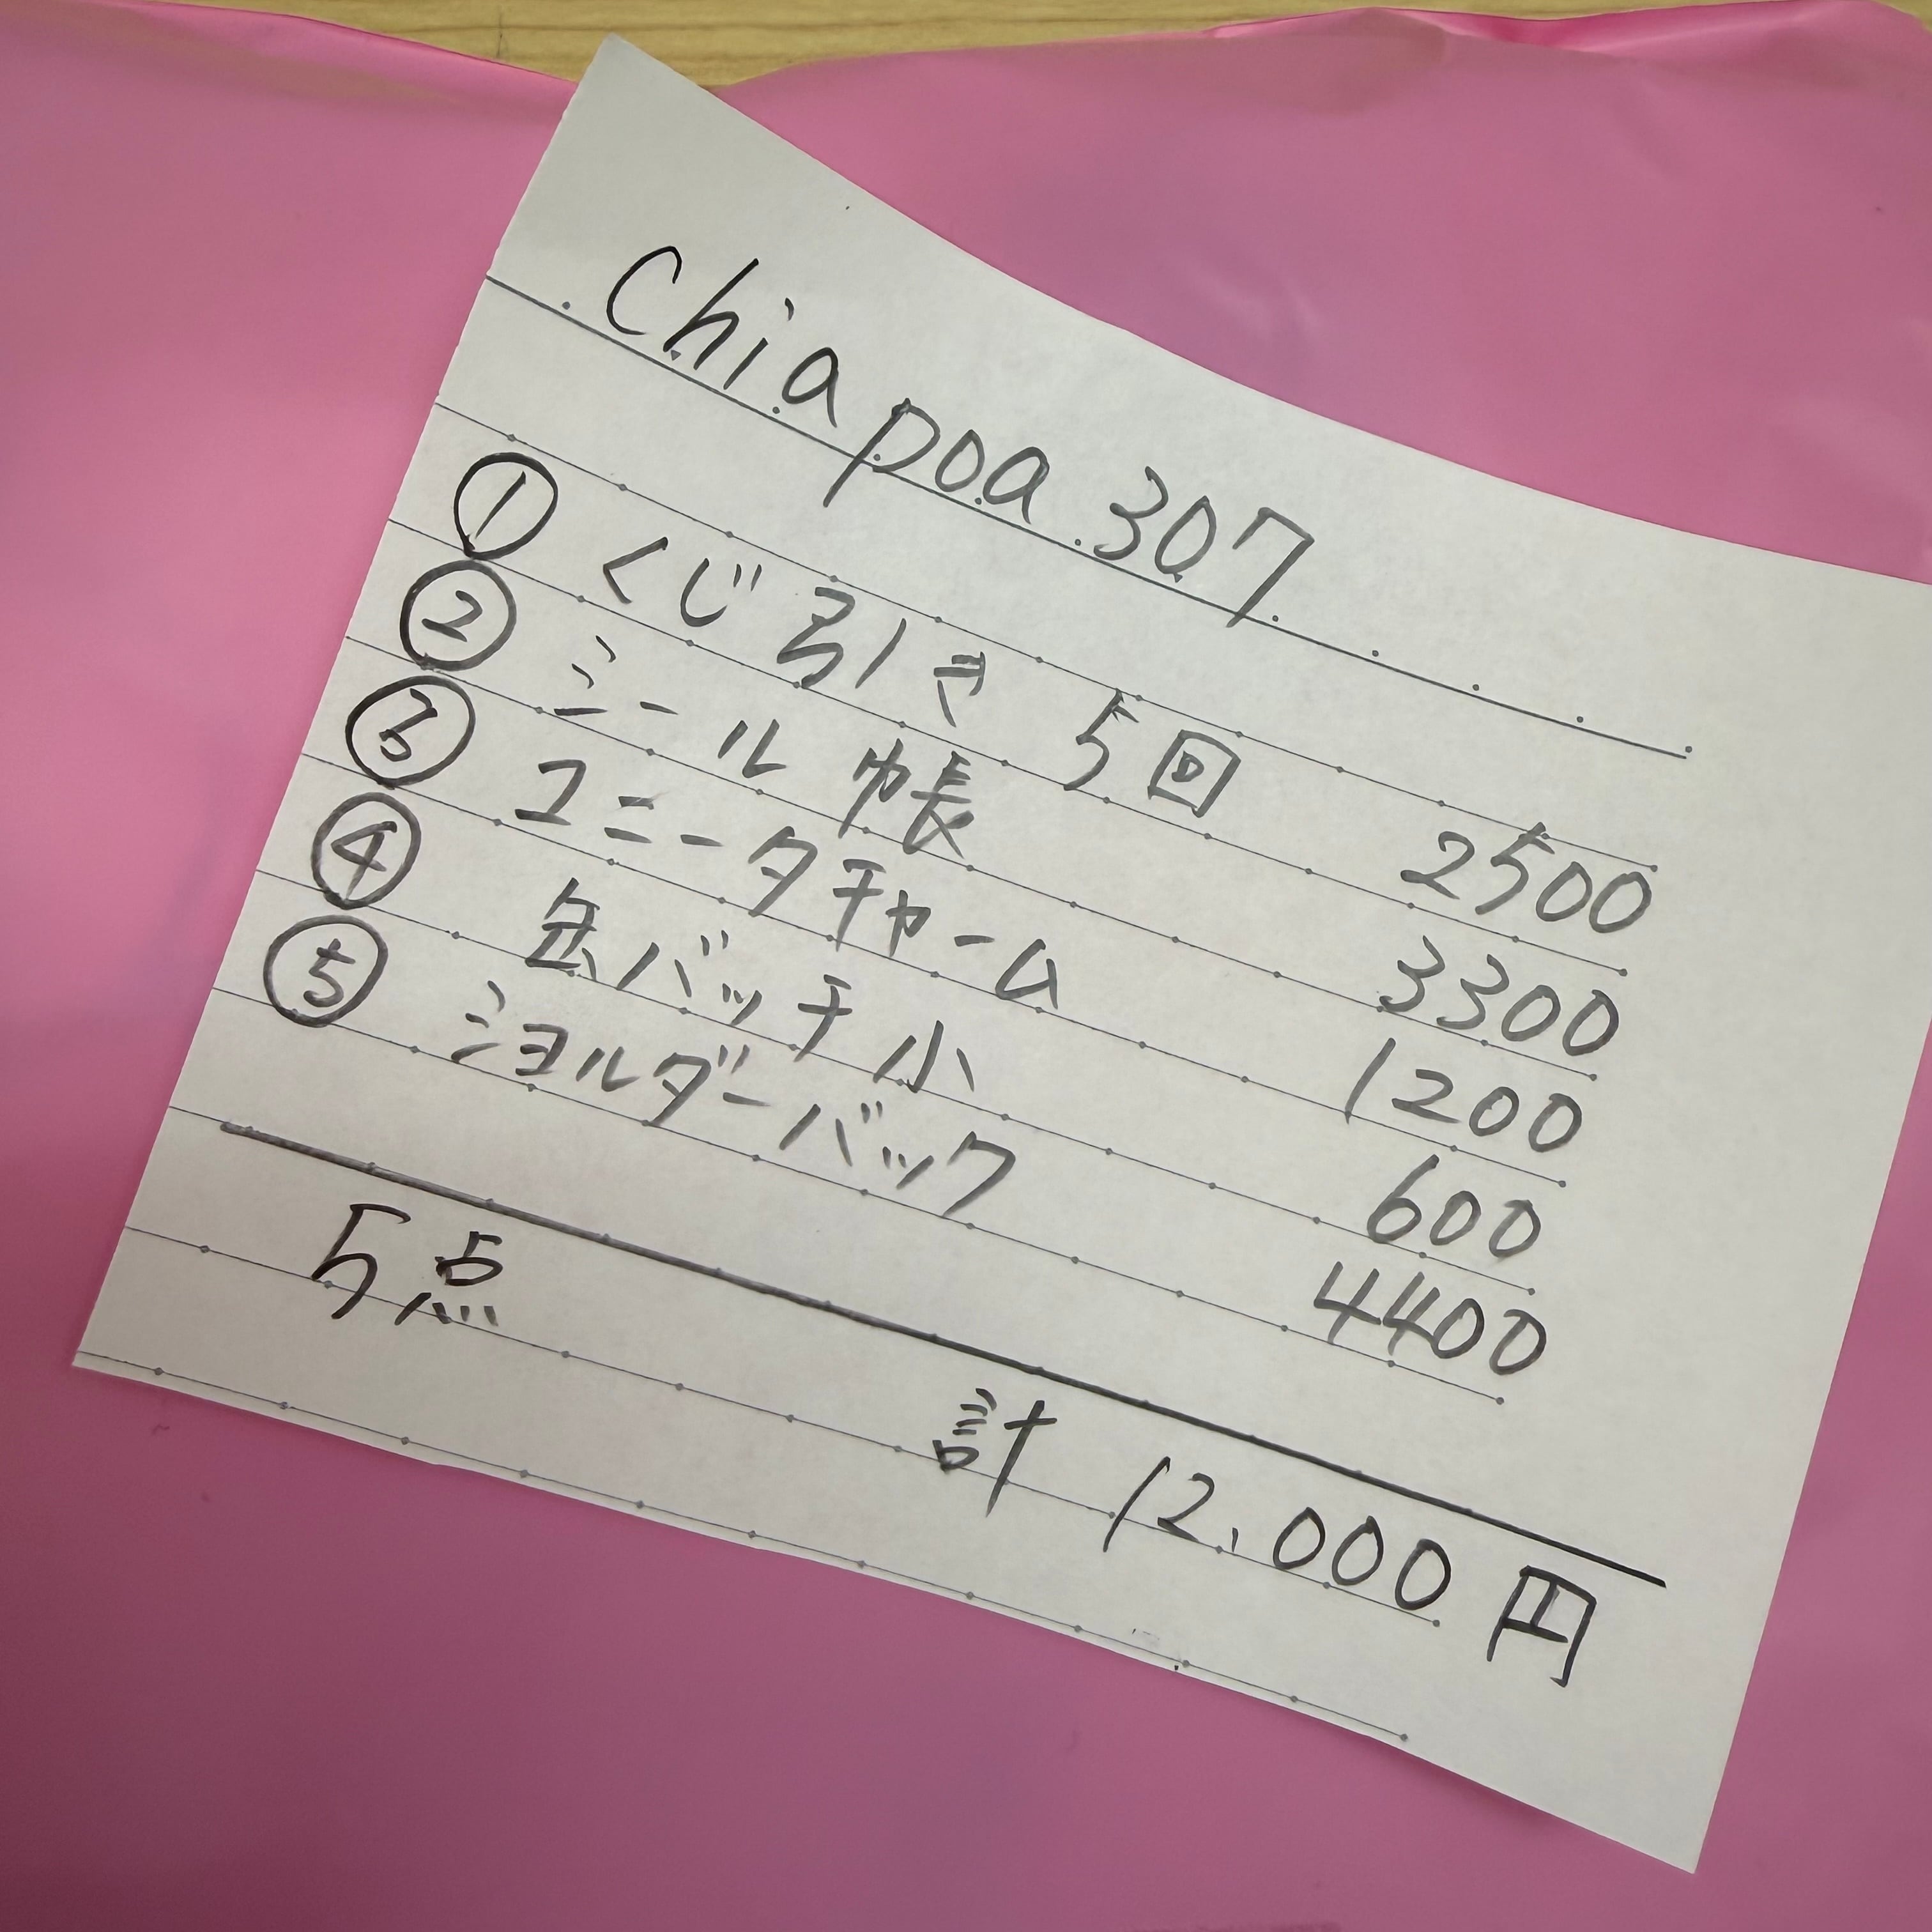 Chiapoa307
① くじ引き 5回 2500
② シール帳 3300
③ ユニータチャーム 1200
④ 缶バッチ小 600
⑤ ショルダーバック 4400
5点
計 12,000円